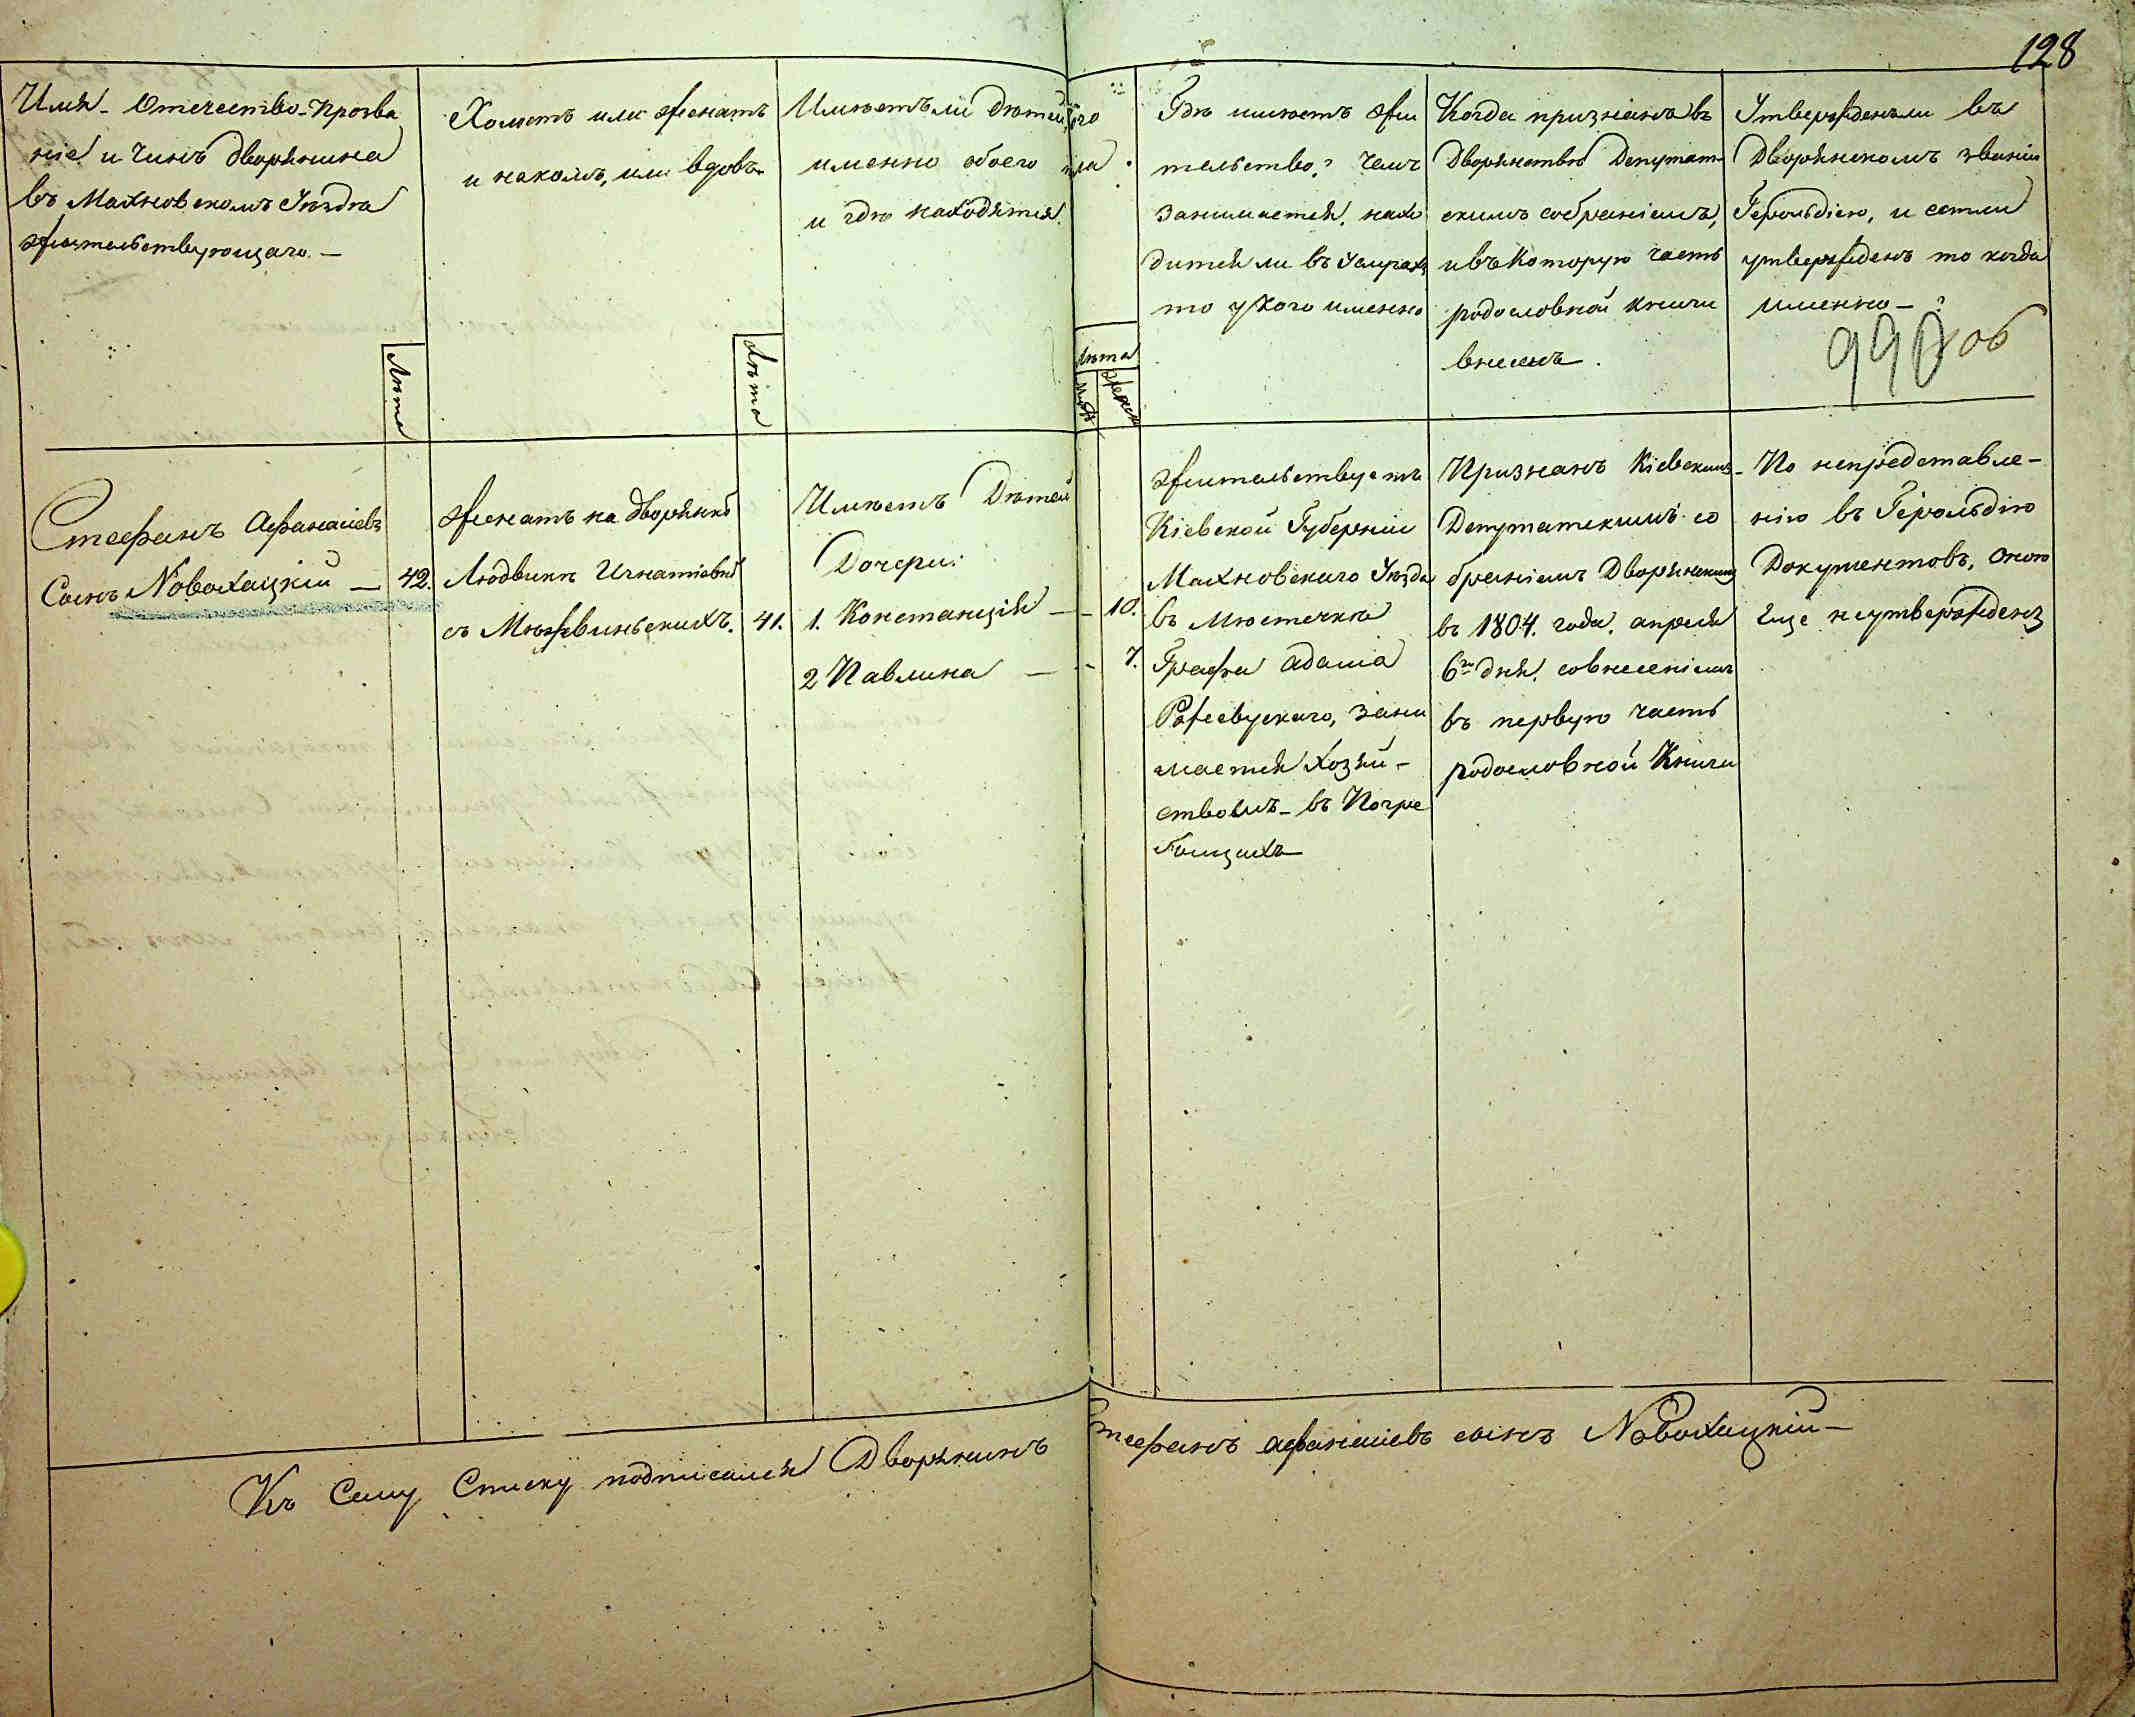 128
Имя - Отечество - Прозва
ніе и Чинъ дворянина
въ Махновскомъ Уѣздѣ
жительствующаго. —
Лѣта
Холостъ или женатъ
и накомъ, или вдовъ
Лѣта
Имѣетъ ли дѣтей, кого
именно обоего пола
и гдѣ находятся.
Лѣта
Муж
Женск
Гдѣ имѣетъ жи
тельство? Чемъ
занимается, нахо
дится ли въ Услугахъ
то у кого именно
Когда признанъ въ
Дворянствѣ Депутат-
скимъ собраніемъ,
и въ которую часть
родословной книги
внесенъ.
Утвержденъ ли въ
Дворянскомъ званіи
Герольдіею, и естли
утвержденъ то когда
именно — ?
990 об
Стефанъ Афанасіевъ
Сынъ Новохацкій — 42.
Женатъ на дворянкѣ
Людвикѣ Игнатіевнѣ
съ Мѣжвинскихъ. 41.
Имѣетъ Дѣтей
Дочери:
1. Констанція — — 10.
2 Павлина — — 7.
Жительствуетъ
Кіевской Губерніи
Махновскаго Уѣзда
въ Мѣстечкѣ
Графа Адама
Ржевускаго, зани
мается Хозяй-
ствомъ - въ Погре
бищахъ
Признанъ Кіевскимъ
Депутатскимъ со
браніемъ Дворянскимъ
въ 1804. года. апреля
6го дня. совнесеніемъ
въ первую часть
родословной Книги
По непредставле-
нію въ Герольдію
Документовъ, оною
Еще неутвержденъ
Къ Сему Списку подписался Дворянинъ Стефанъ Афанасіевъ сынъ Новохацкій —